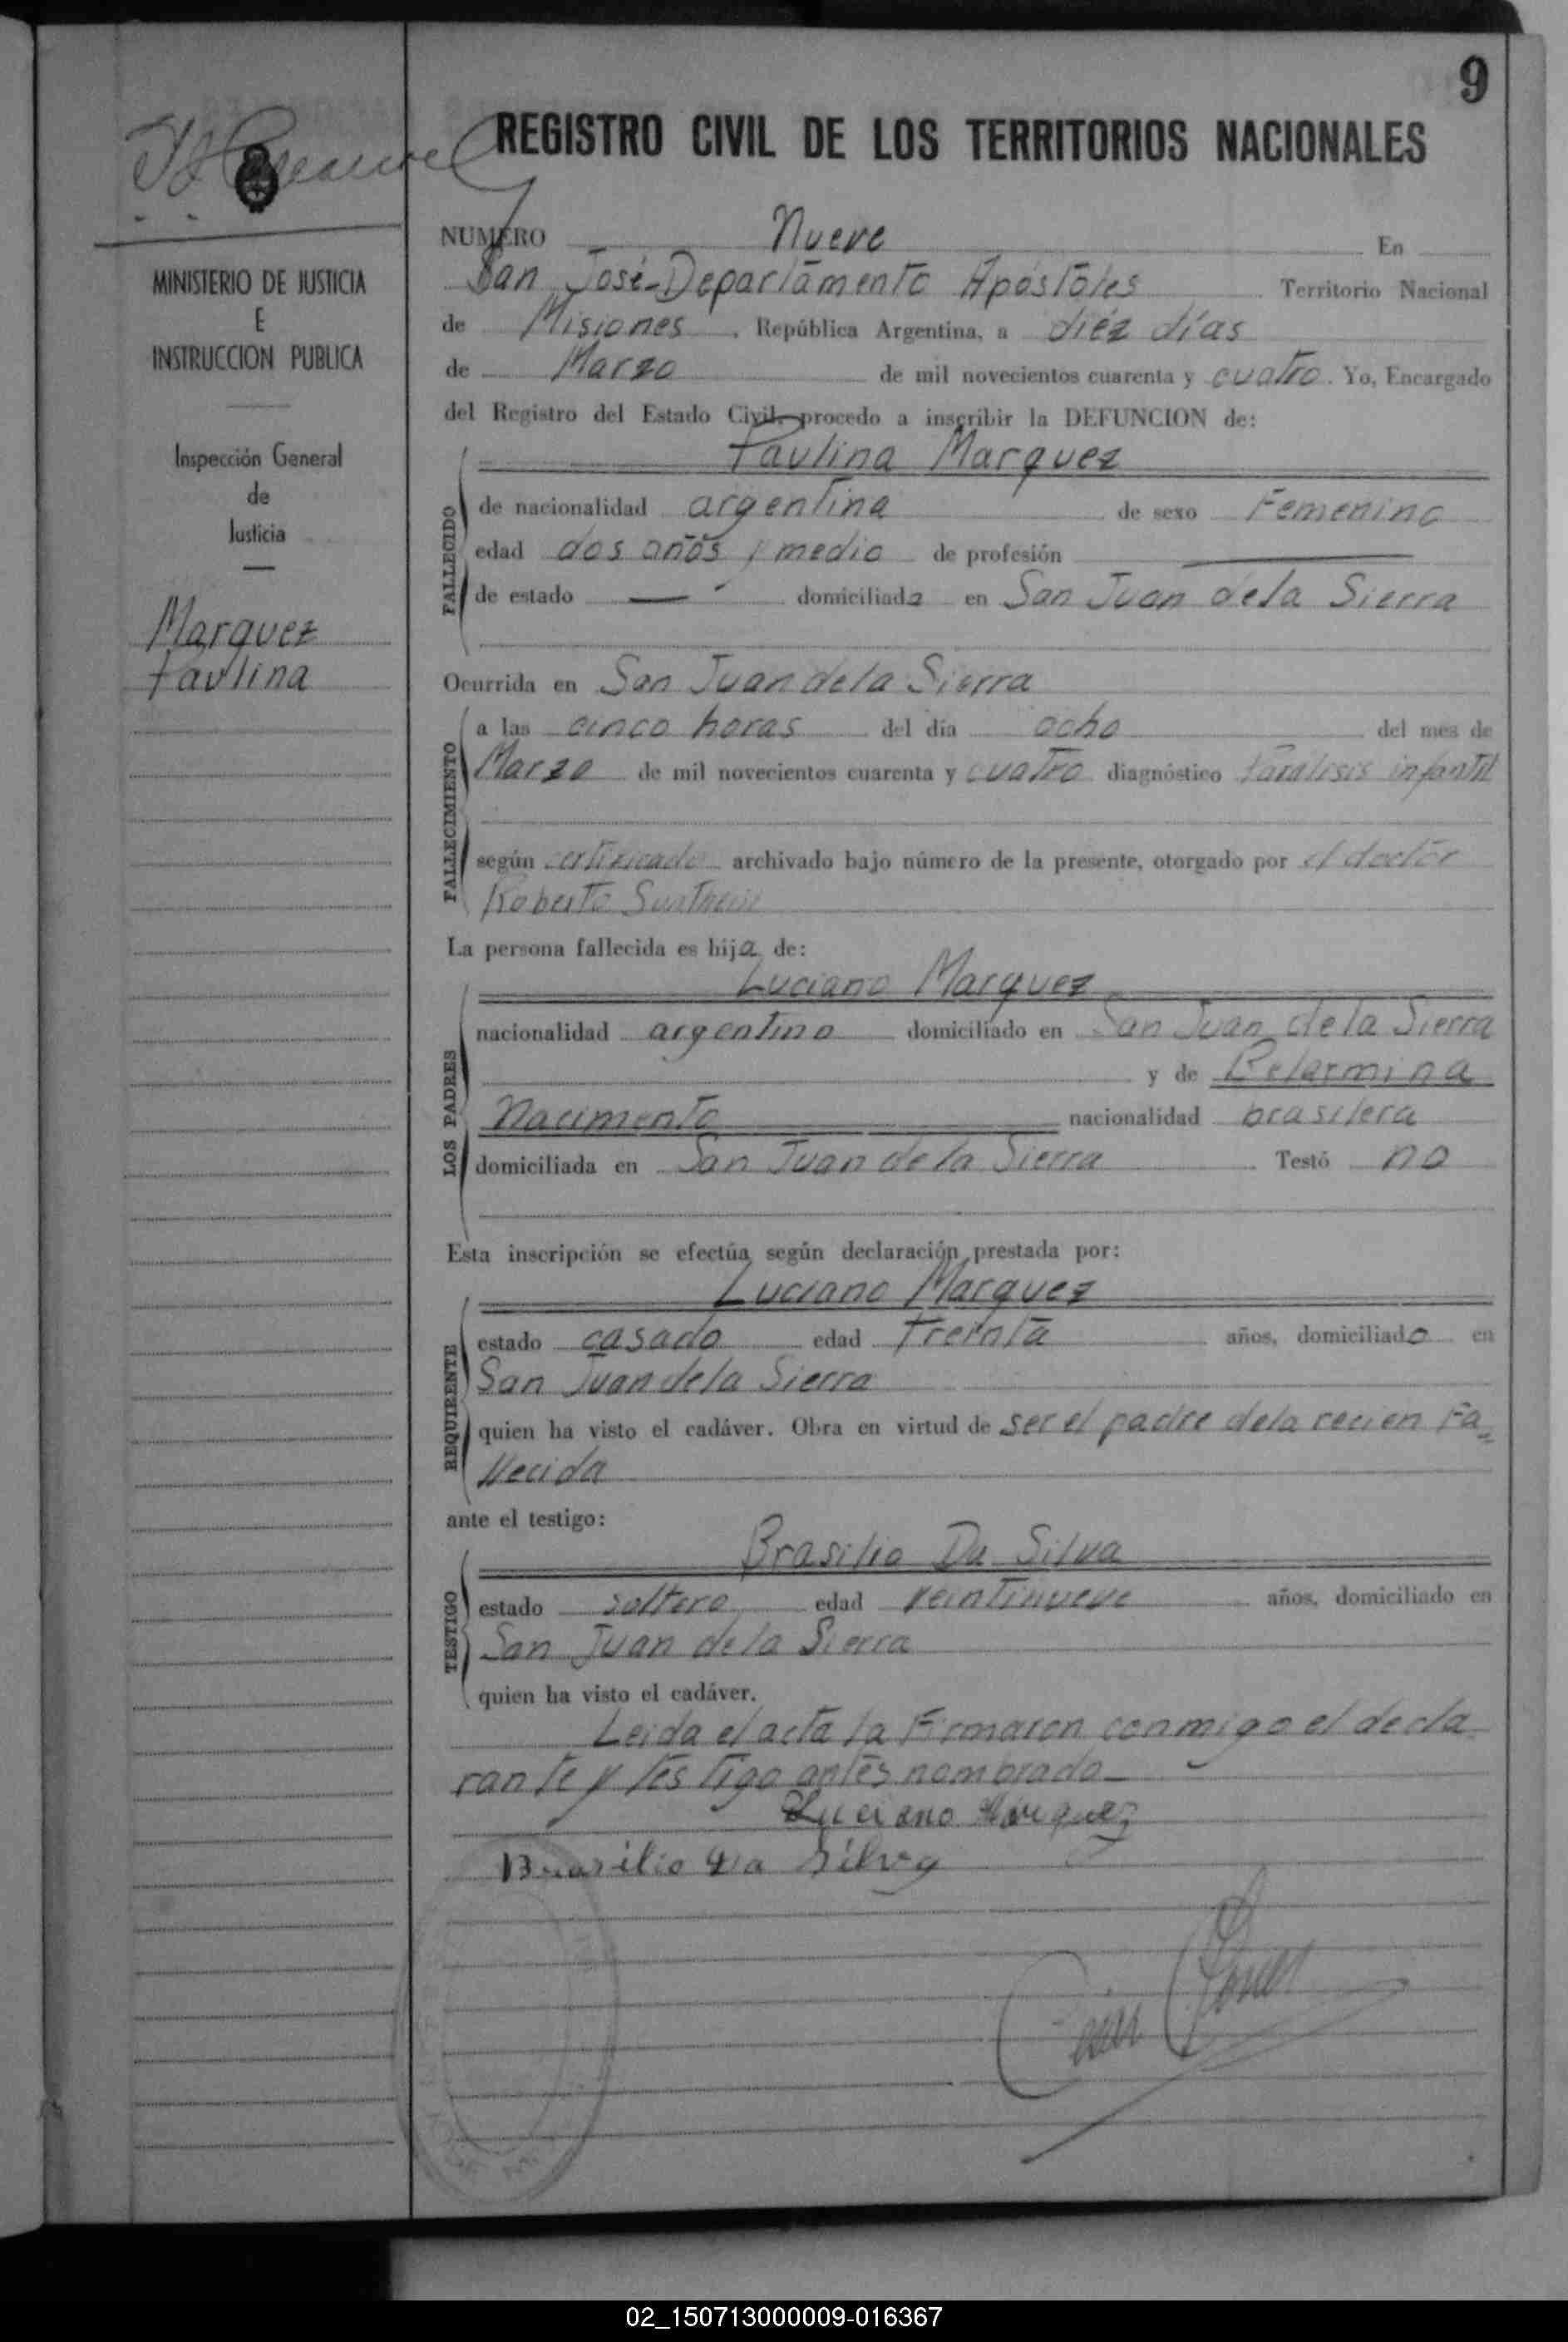 9
REGISTRO CIVIL DE LOS TERRITORIOS NACIONALES
MINISTERIO DE JUSTICIA
E
INSTRUCCION PUBLICA
Inspección General
de
Justicia
Marquez
Paulina
NUMERO Nueve En
San José-Departamento Apóstoles Territorio Nacional
de Misiones, República Argentina, a diéz días
de Marzo de mil novecientos cuarenta y cuatro. Yo, Encargado
del Registro del Estado Civil, procedo a inscribir la DEFUNCION de:
Paulina Marquez
FALLECIDO
de nacionalidad argentina de sexo Femenino
edad dos años y medio de profesión
de estado domiciliada en San Juan dela Sierra
Ocurrida en San Juan dela Sierra
FALLECIMIENTO
a las cinco horas del día ocho del mes de
Marzo de mil novecientos cuarenta y cuatro diagnóstico Parálisis infantil
según certificado archivado bajo número de la presente, otorgado por el doctor
Roberto
La persona fallecida es hija de:
Luciano Marquez
LOS PADRES
nacionalidad argentino domiciliado en San Juan de la Sierra
y de Belarmina
Nacimento nacionalidad brasilera
domiciliada en San Juan de la Sierra Testó no
Esta inscripción se efectúa según declaración prestada por:
Luciano Marquez
REQUIRENTE
estado casado edad treinta años, domiciliado en
San Juan dela Sierra
quien ha visto el cadáver. Obra en virtud de ser el padre dela recien Fa-
llecida
ante el testigo:
Brasilio Da Silva
TESTIGO
estado soltero edad veintinueve años, domiciliado en
San Juan de la Sierra
quien ha visto el cadáver.
Leida el acta la Firmaron conmigo el decla
rante y testigo antes nombrado
Luciano Marquez
Brasilio da Silva
02_150713000009-016367